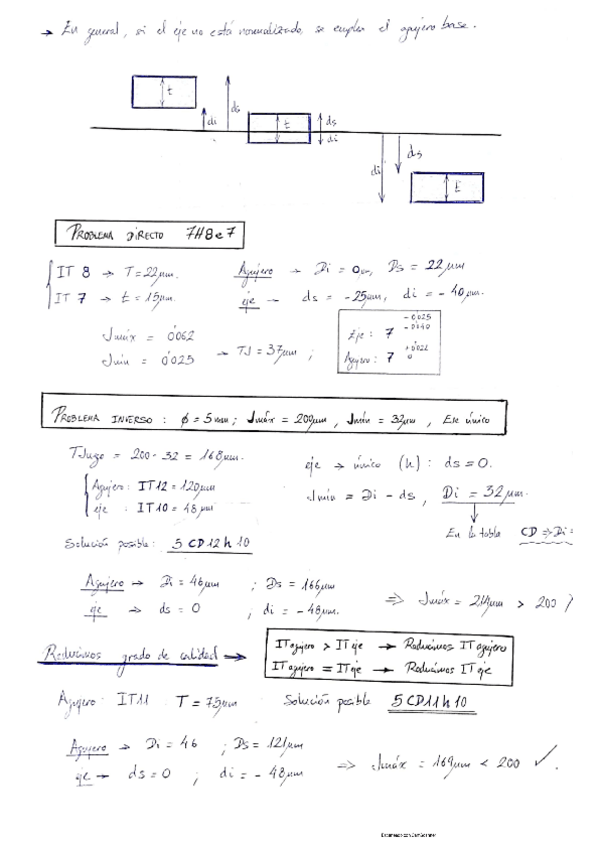 → En general, si el eje no está normalizado, se emplea el agujero base.
t di ds t ds di di ds t
PROBLEMA DIRECTO 7H8e7
IT 8 → T = 22μm. Agujero → Di = 0μm, Ds = 22μm
IT 7 → t = 15μm. eje → ds = -25μm, di = -40μm.
Jmáx = 0'062
Jmín = 0'025 → TJ = 37μm ;
Eje: 7 -0'025 -0'040
Agujero: 7 +0'022 0
PROBLEMA INVERSO: ϕ = 5mm; Jmáx = 200μm, Jmín = 32μm, Eje único
TJuego = 200 - 32 = 168μm. eje → único (h): ds = 0.
Agujero: IT12 = 120μm
eje : IT10 = 48μm
Jmín = Di - ds, Di = 32μm.
En la tabla CD ⇒ Di =
Solución posible: 5 CD12h10
Agujero → Di = 46μm ; Ds = 166μm
eje → ds = 0 , di = -48μm. ⇒ Jmáx = 214μm > 200
Reducimos grado de calidad →
IT agujero > IT eje → Reducimos IT agujero
IT agujero = IT eje → Reducimos IT eje
Agujero: IT11 T = 75μm Solución posible 5CD11h10
Agujero → Di = 46 ; Ds = 121μm
eje → ds = 0 ; di = -48μm ⇒ Jmáx = 169μm < 200 ✓.